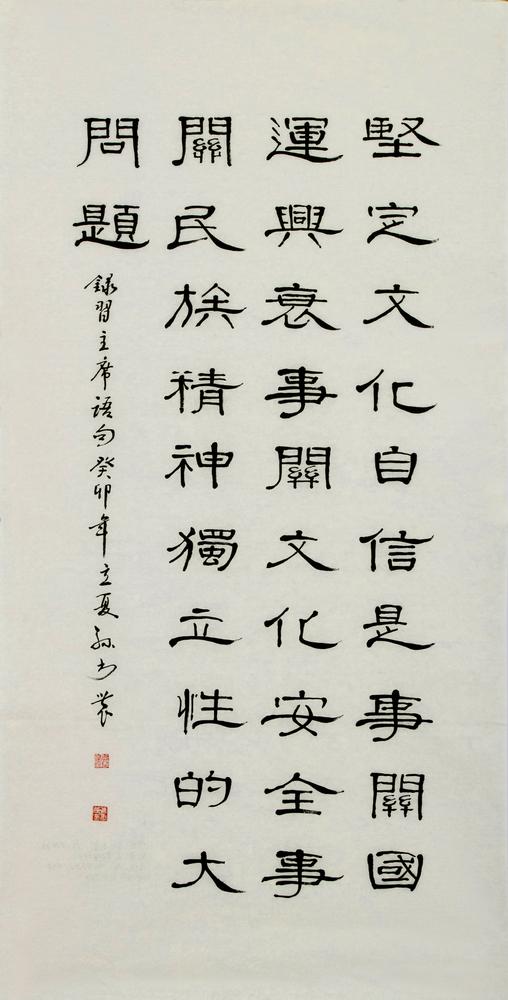 堅定文化自信是事關國
運興衰事關文化安全事
關民族精神獨立性的大
問題
錄習主席語句癸卯年立夏孫